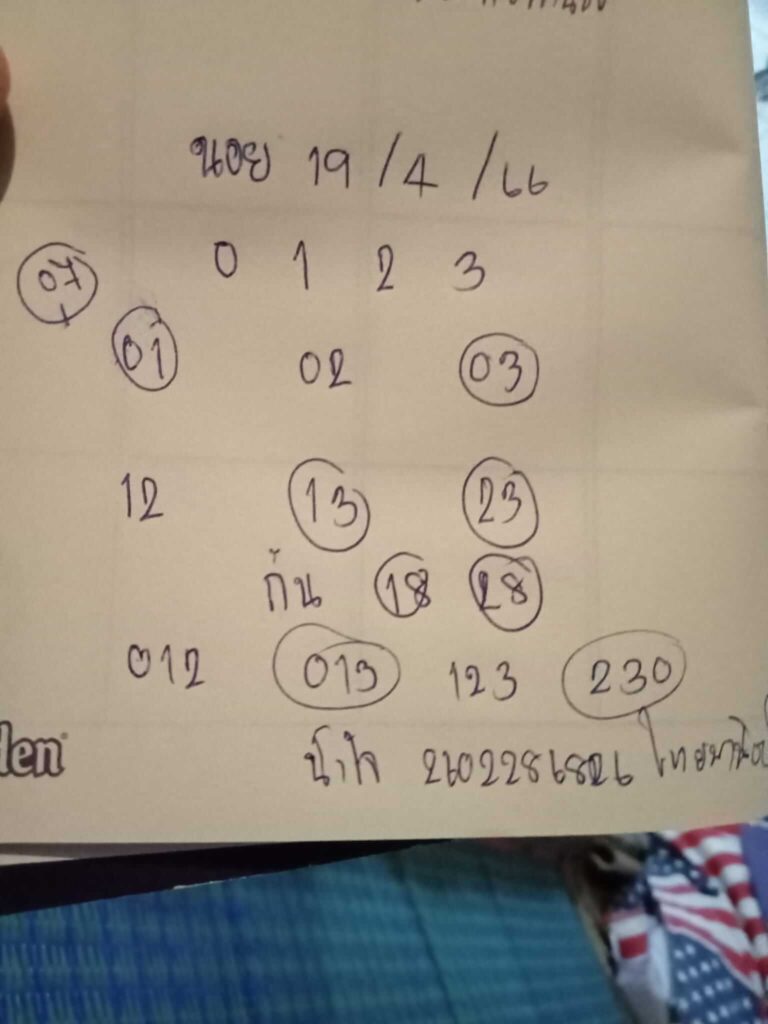 นอย 19/4/66
0 1 2 3
07
01 02 03
12 13 23
กัน 18 28
012 013 123 230
len
น้ำใจ 2602286826 ไทยพานิช